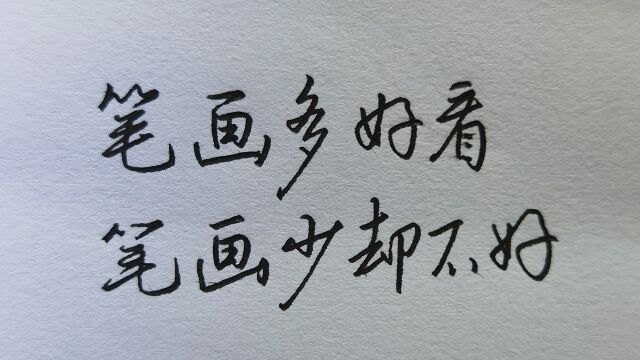 笔画多好看
笔画少却不好